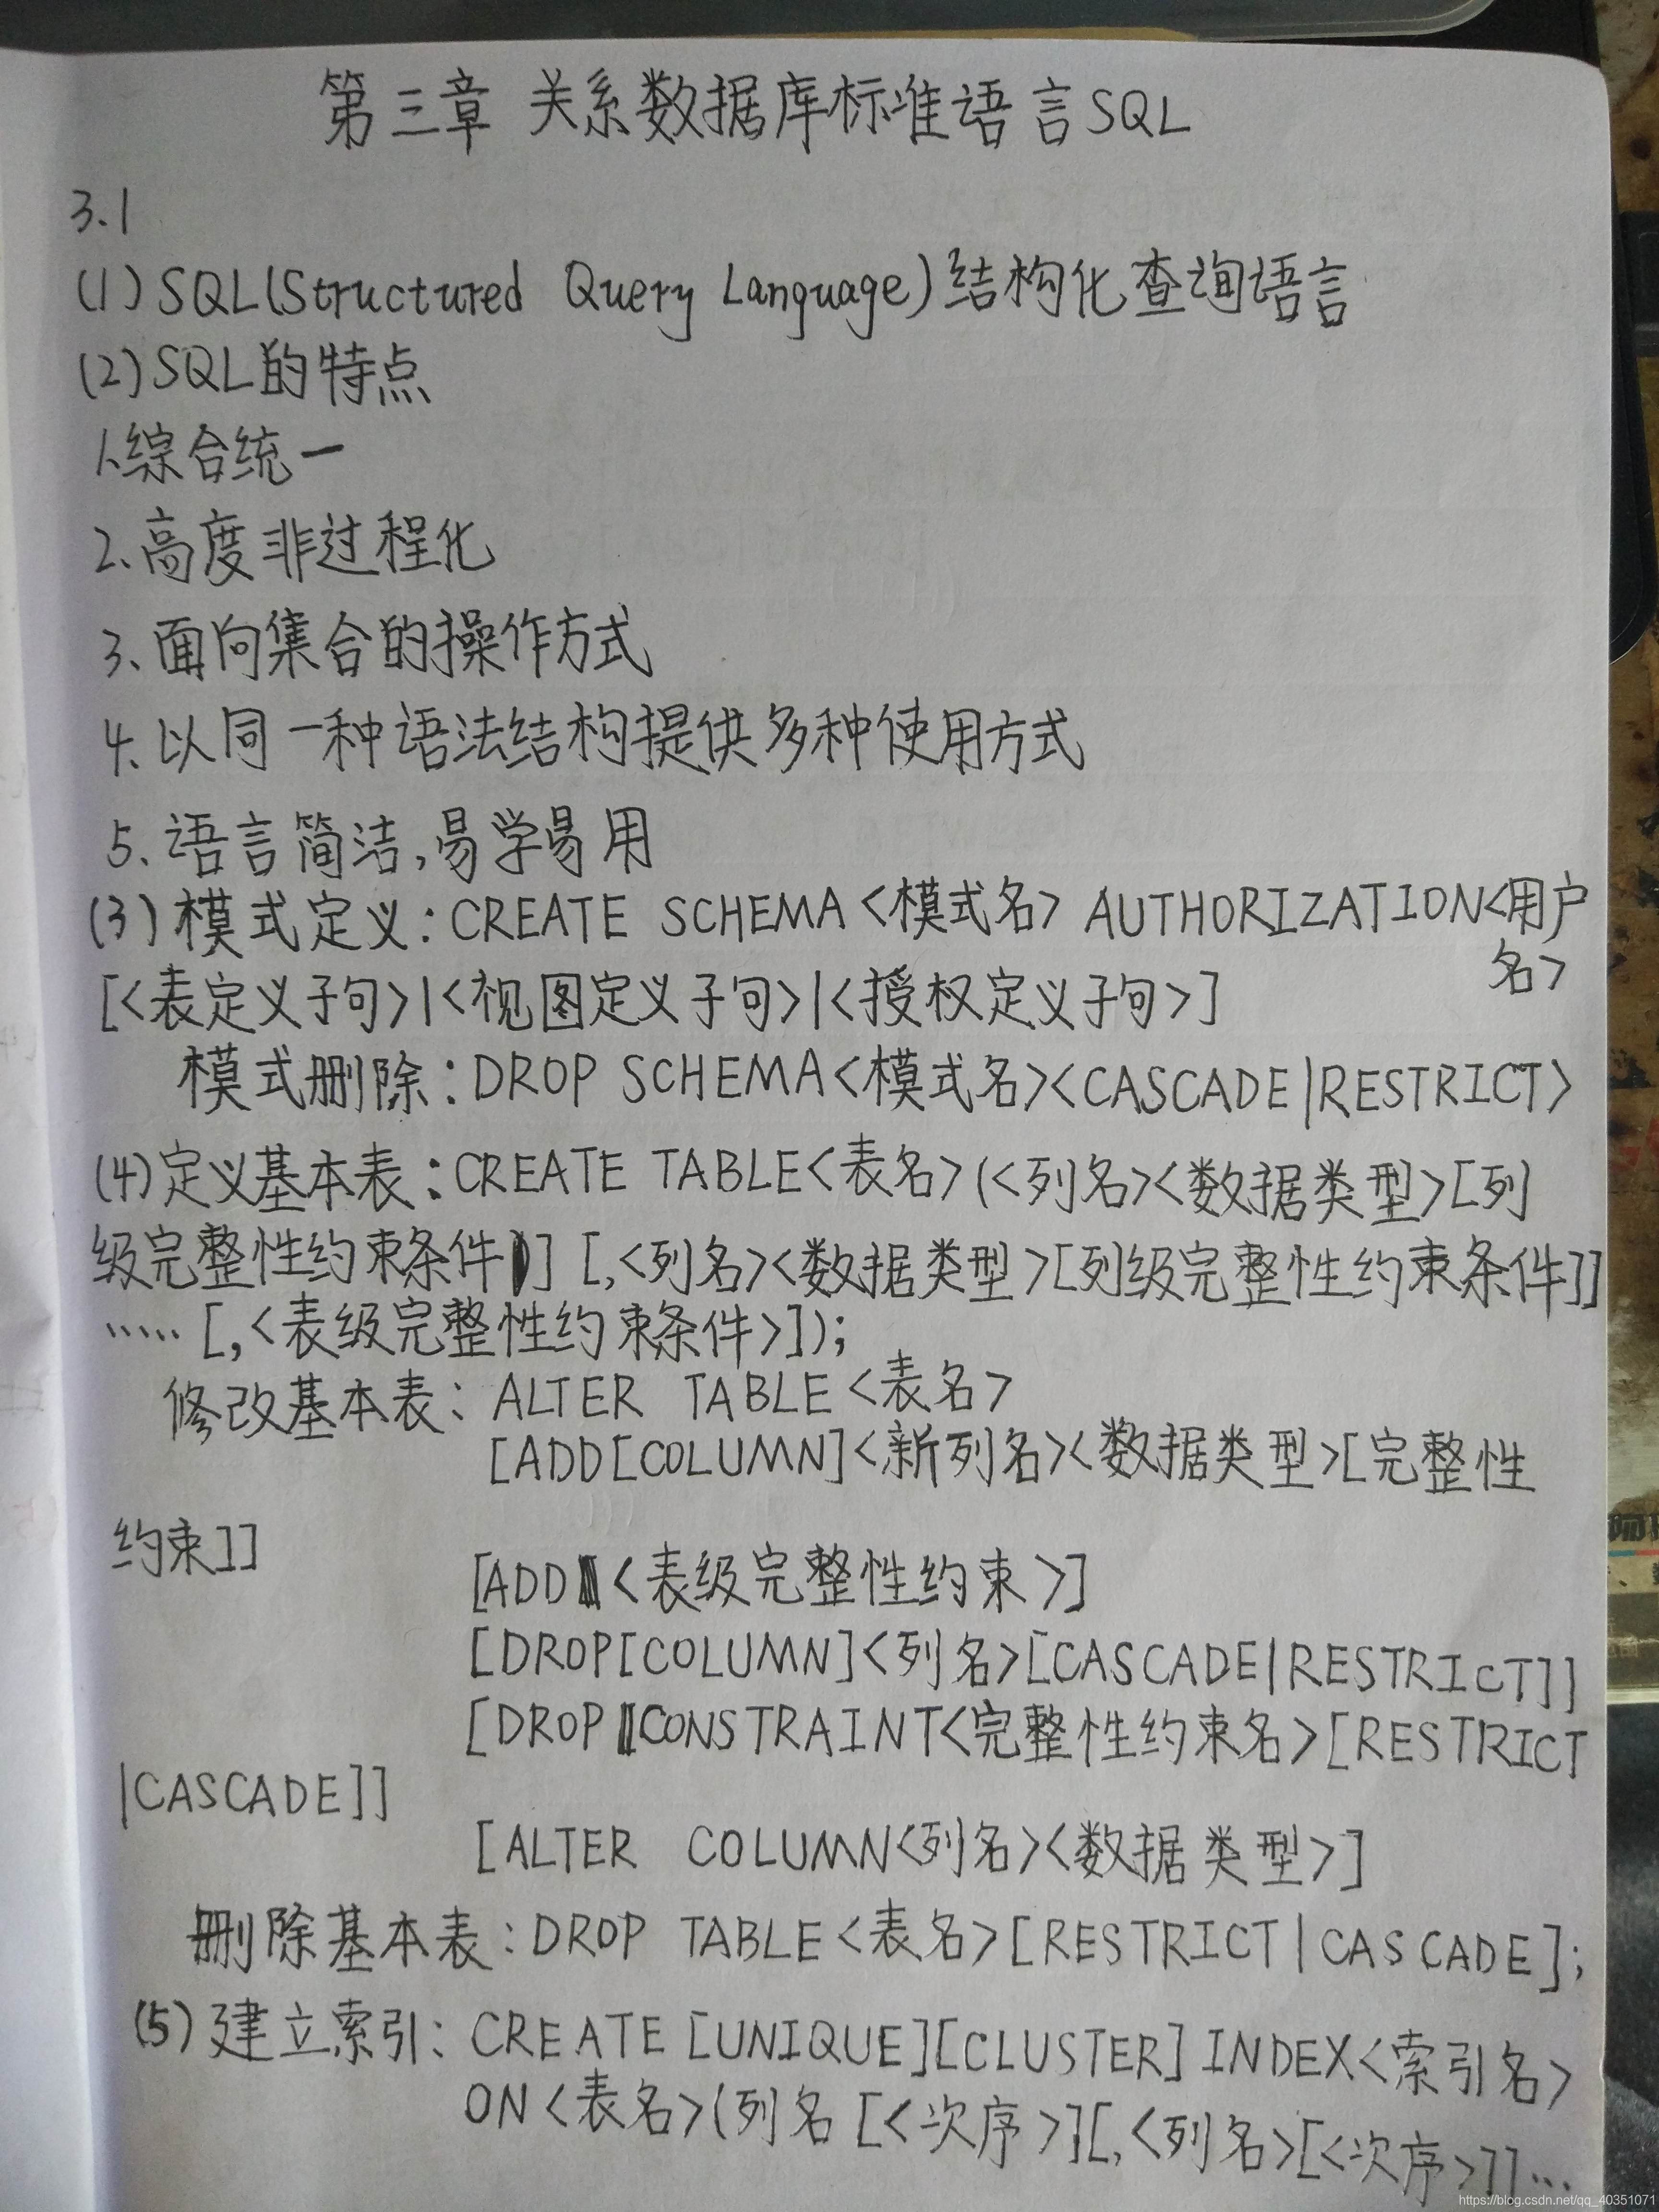 第三章 关系数据库标准语言SQL
3.1
(1)SQL(Structured Query Language)结构化查询语言
(2)SQL的特点
1.综合统一
2、高度非过程化
3、面向集合的操作方式
4.以同一种语法结构提供多种使用方式
5.语言简洁,易学易用
(3)模式定义:CREATE SCHEMA<模式名> AUTHORIZATION<用户
名>
[<表定义子句>|<视图定义子句>|<授权定义子句>]
模式删除:DROP SCHEMA<模式名><CASCADE|RESTRICT>
(4)定义基本表:CREATE TABLE<表名>(<列名><数据类型>[列
级完整性约束条件] [,<列名><数据类型>[列级完整性约束条件]]
…… [,<表级完整性约束条件>]);
修改基本表:ALTER TABLE<表名>
[ADD[COLUMN]<新列名><数据类型>[完整性
约束]]
[ADD<表级完整性约束>]
[DROP[COLUMN]<列名>[CASCADE|RESTRICT]]
[DROP CONSTRAINT<完整性约束名>[RESTRICT
|CASCADE]]
[ALTER COLUMN<列名><数据类型>]
删除基本表:DROP TABLE<表名>[RESTRICT|CASCADE];
(5)建立索引:CREATE [UNIQUE][CLUSTER] INDEX<索引名>
ON<表名>(列名[<次序>][,<列名>[<次序>]]…
https://blog.csdn.net/qq_40351071